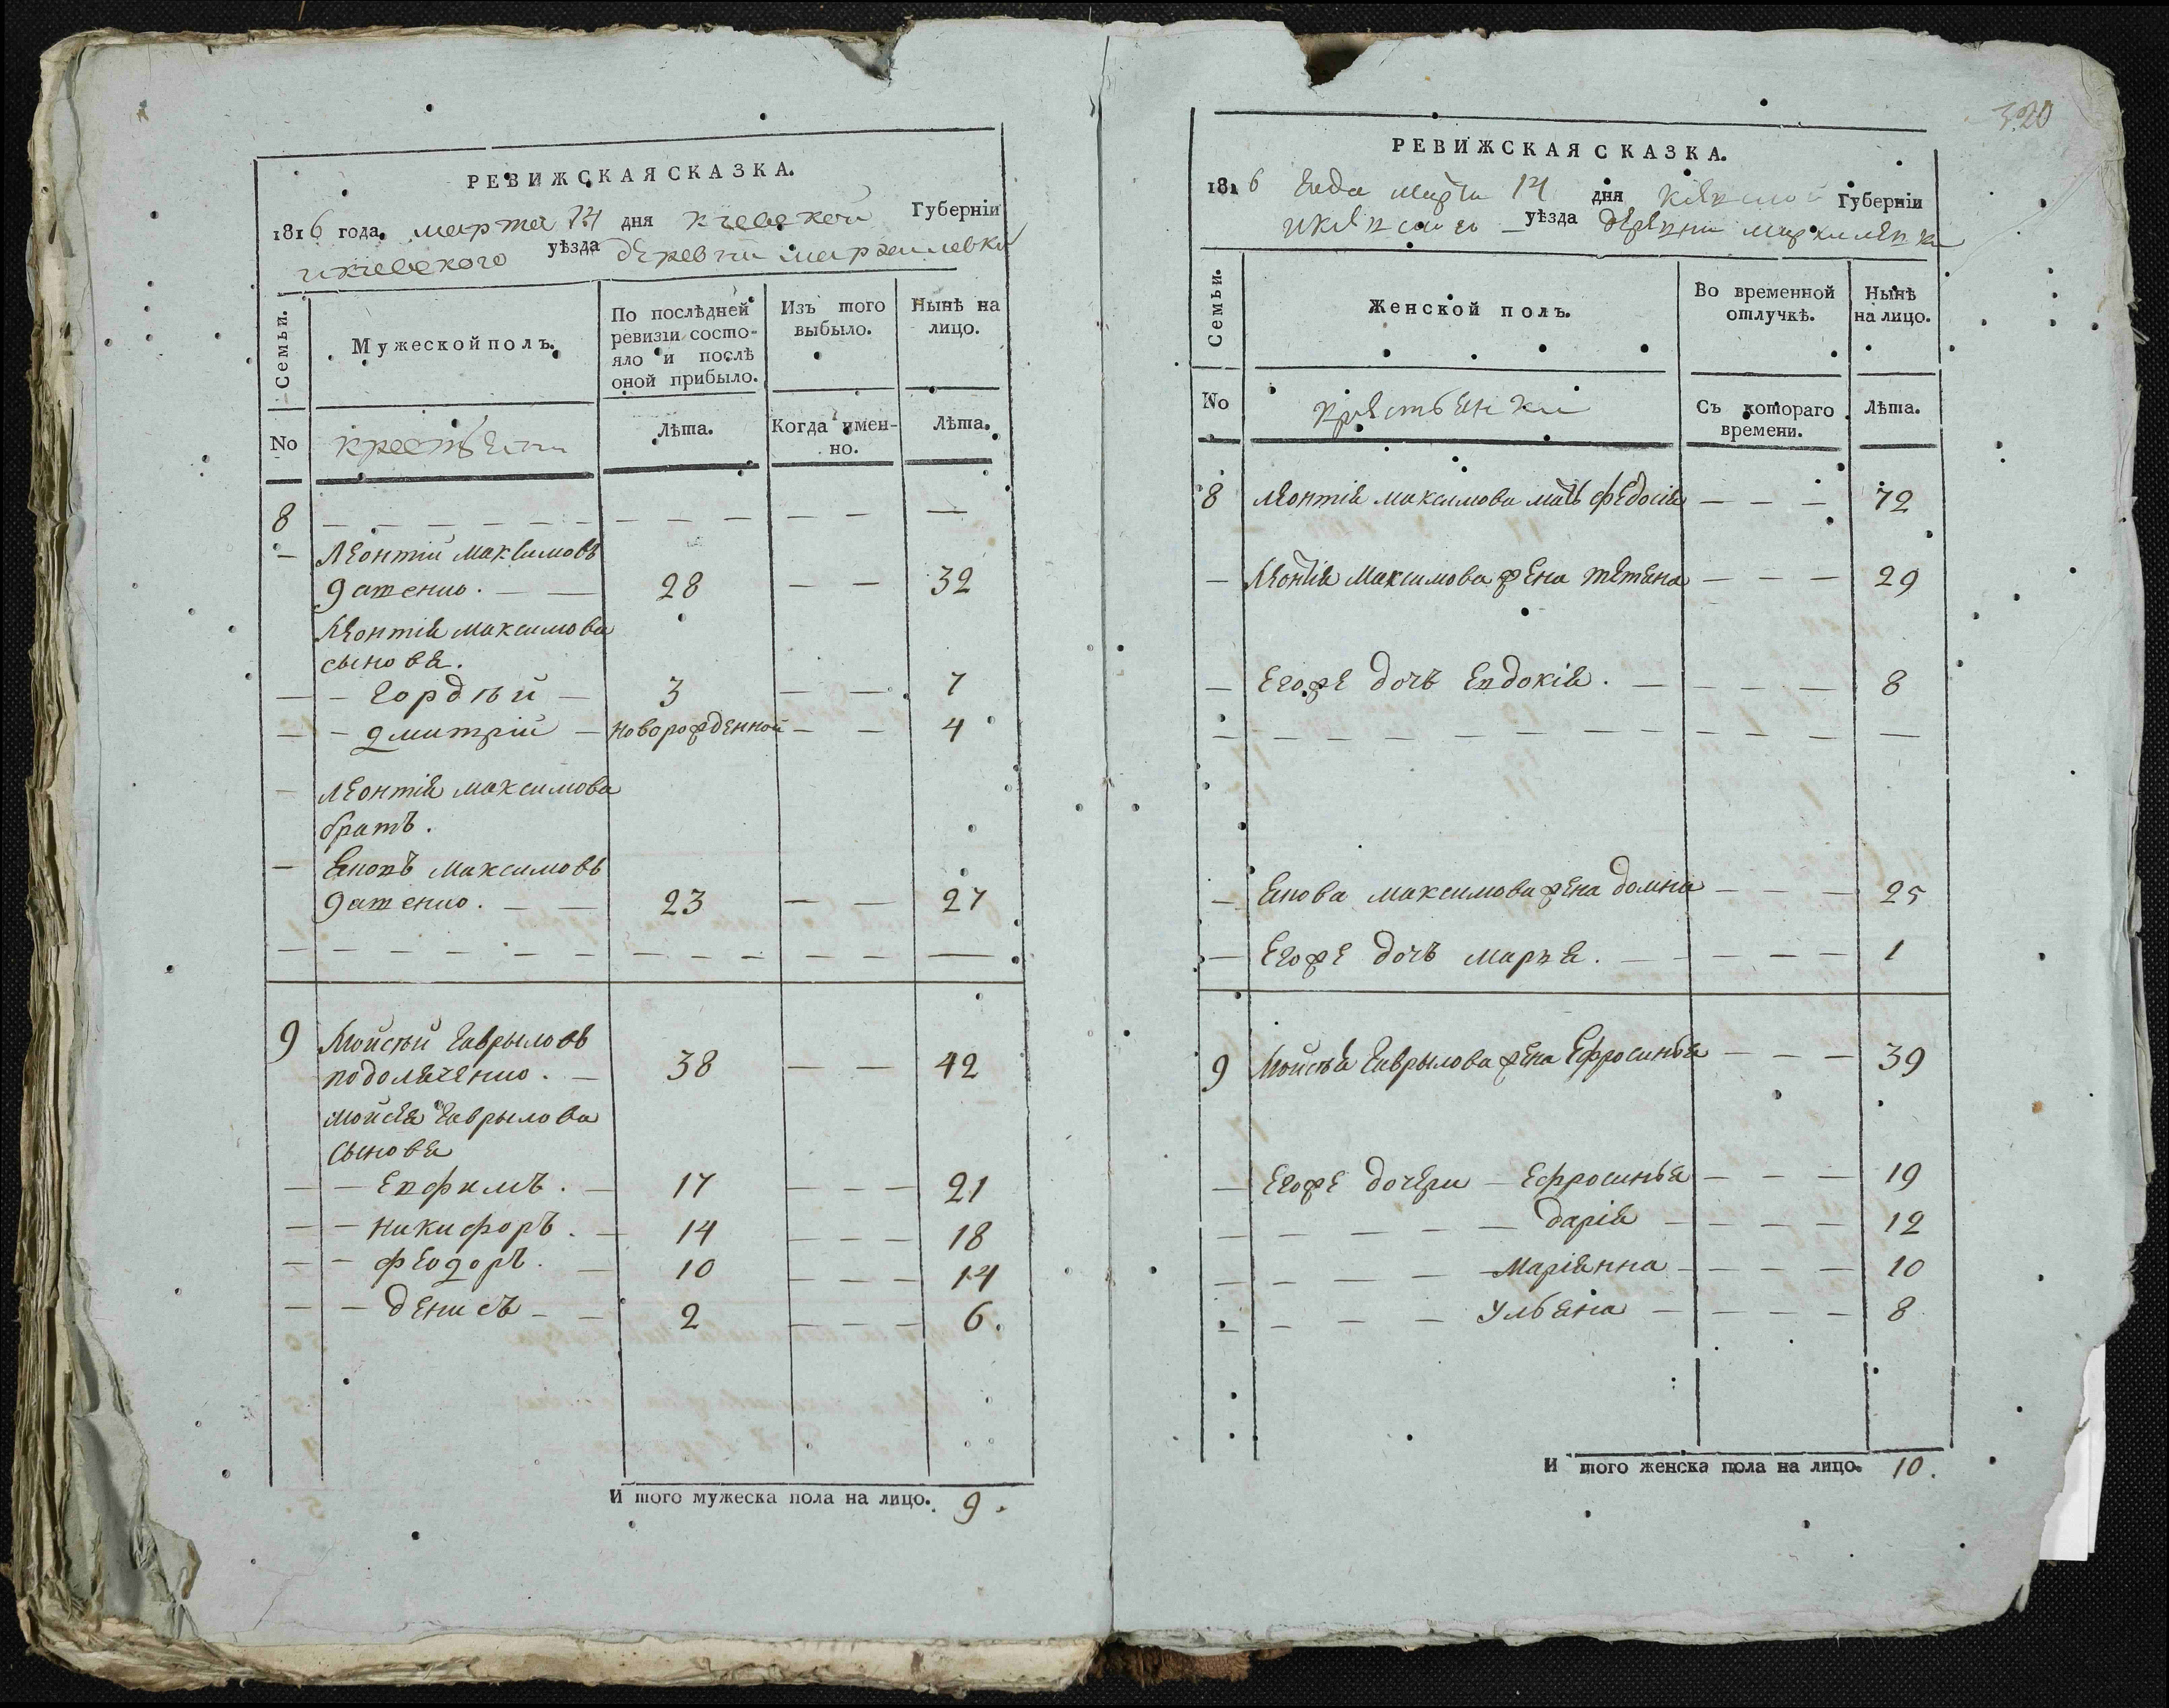 РЕВИЖСКАЯ СКАЗКА.
1816 года марта 14 дня кіевской Губерніи
икіевского уѣзда деревни
Семьи.
Мужеской полъ.
По послѣдней ревизіи состо-
яло и послѣ
оной прибыло.
Изъ того
выбыло.
Нынѣ на
лицо.
No
крестьяни
Лѣта.
Когда имен-
но.
Лѣта.
8 — — — — — — — — — — — —
— Леонтій максимовъ
28 — — 32
Леонтія максимова
сыновя.
— — гордѣй — 3 — — 7
— — дмитрій — новорожденной — — 4
— Леонтія максимова
братъ.
— максимовъ
23 — — 27
— — — — — — — — — — — — —
9 Мойсѣй гаврыловъ
подоляченко. — 38 — — 42
мойсея гаврылова
сыновя
— — Евфимъ. — 17 — — — 21
— — никифоръ. — 14 — — — 18
— — феодоръ. — 10 — — — 14
— — денисъ — — 2 — — — 6.
И того мужеска пола на лицо. 9.
320
РЕВИЖСКАЯ СКАЗКА.
1816 года марта 14 дня кіевской Губерніи
икіевского уѣзда деревни
Семьи.
Женской полъ.
Во временной
отлучкѣ.
Нынѣ
на лицо.
No
крестьянки
Съ котораго
времени.
Лѣта.
8 Леонтія максимова мать федосія — — — 72
— Леонтія Максимова жена тетяна — — — 29
— Егоже дочь Евдокія. — — — — 8
— — — — — — — — — — — — —
— максимова жена домна — — — 25
— Егоже дочь марья. — — — — — 1
9 Мойсѣя гаврылова жена Ефросинья — — — 39
— Егоже дочери — Ефросинья — — — 19
— — — — — дарія — — — — 12
— — — — — Маріянна — — — — 10
— — — — Ульяна — — — — 8
И того женска пола на лицо. 10.